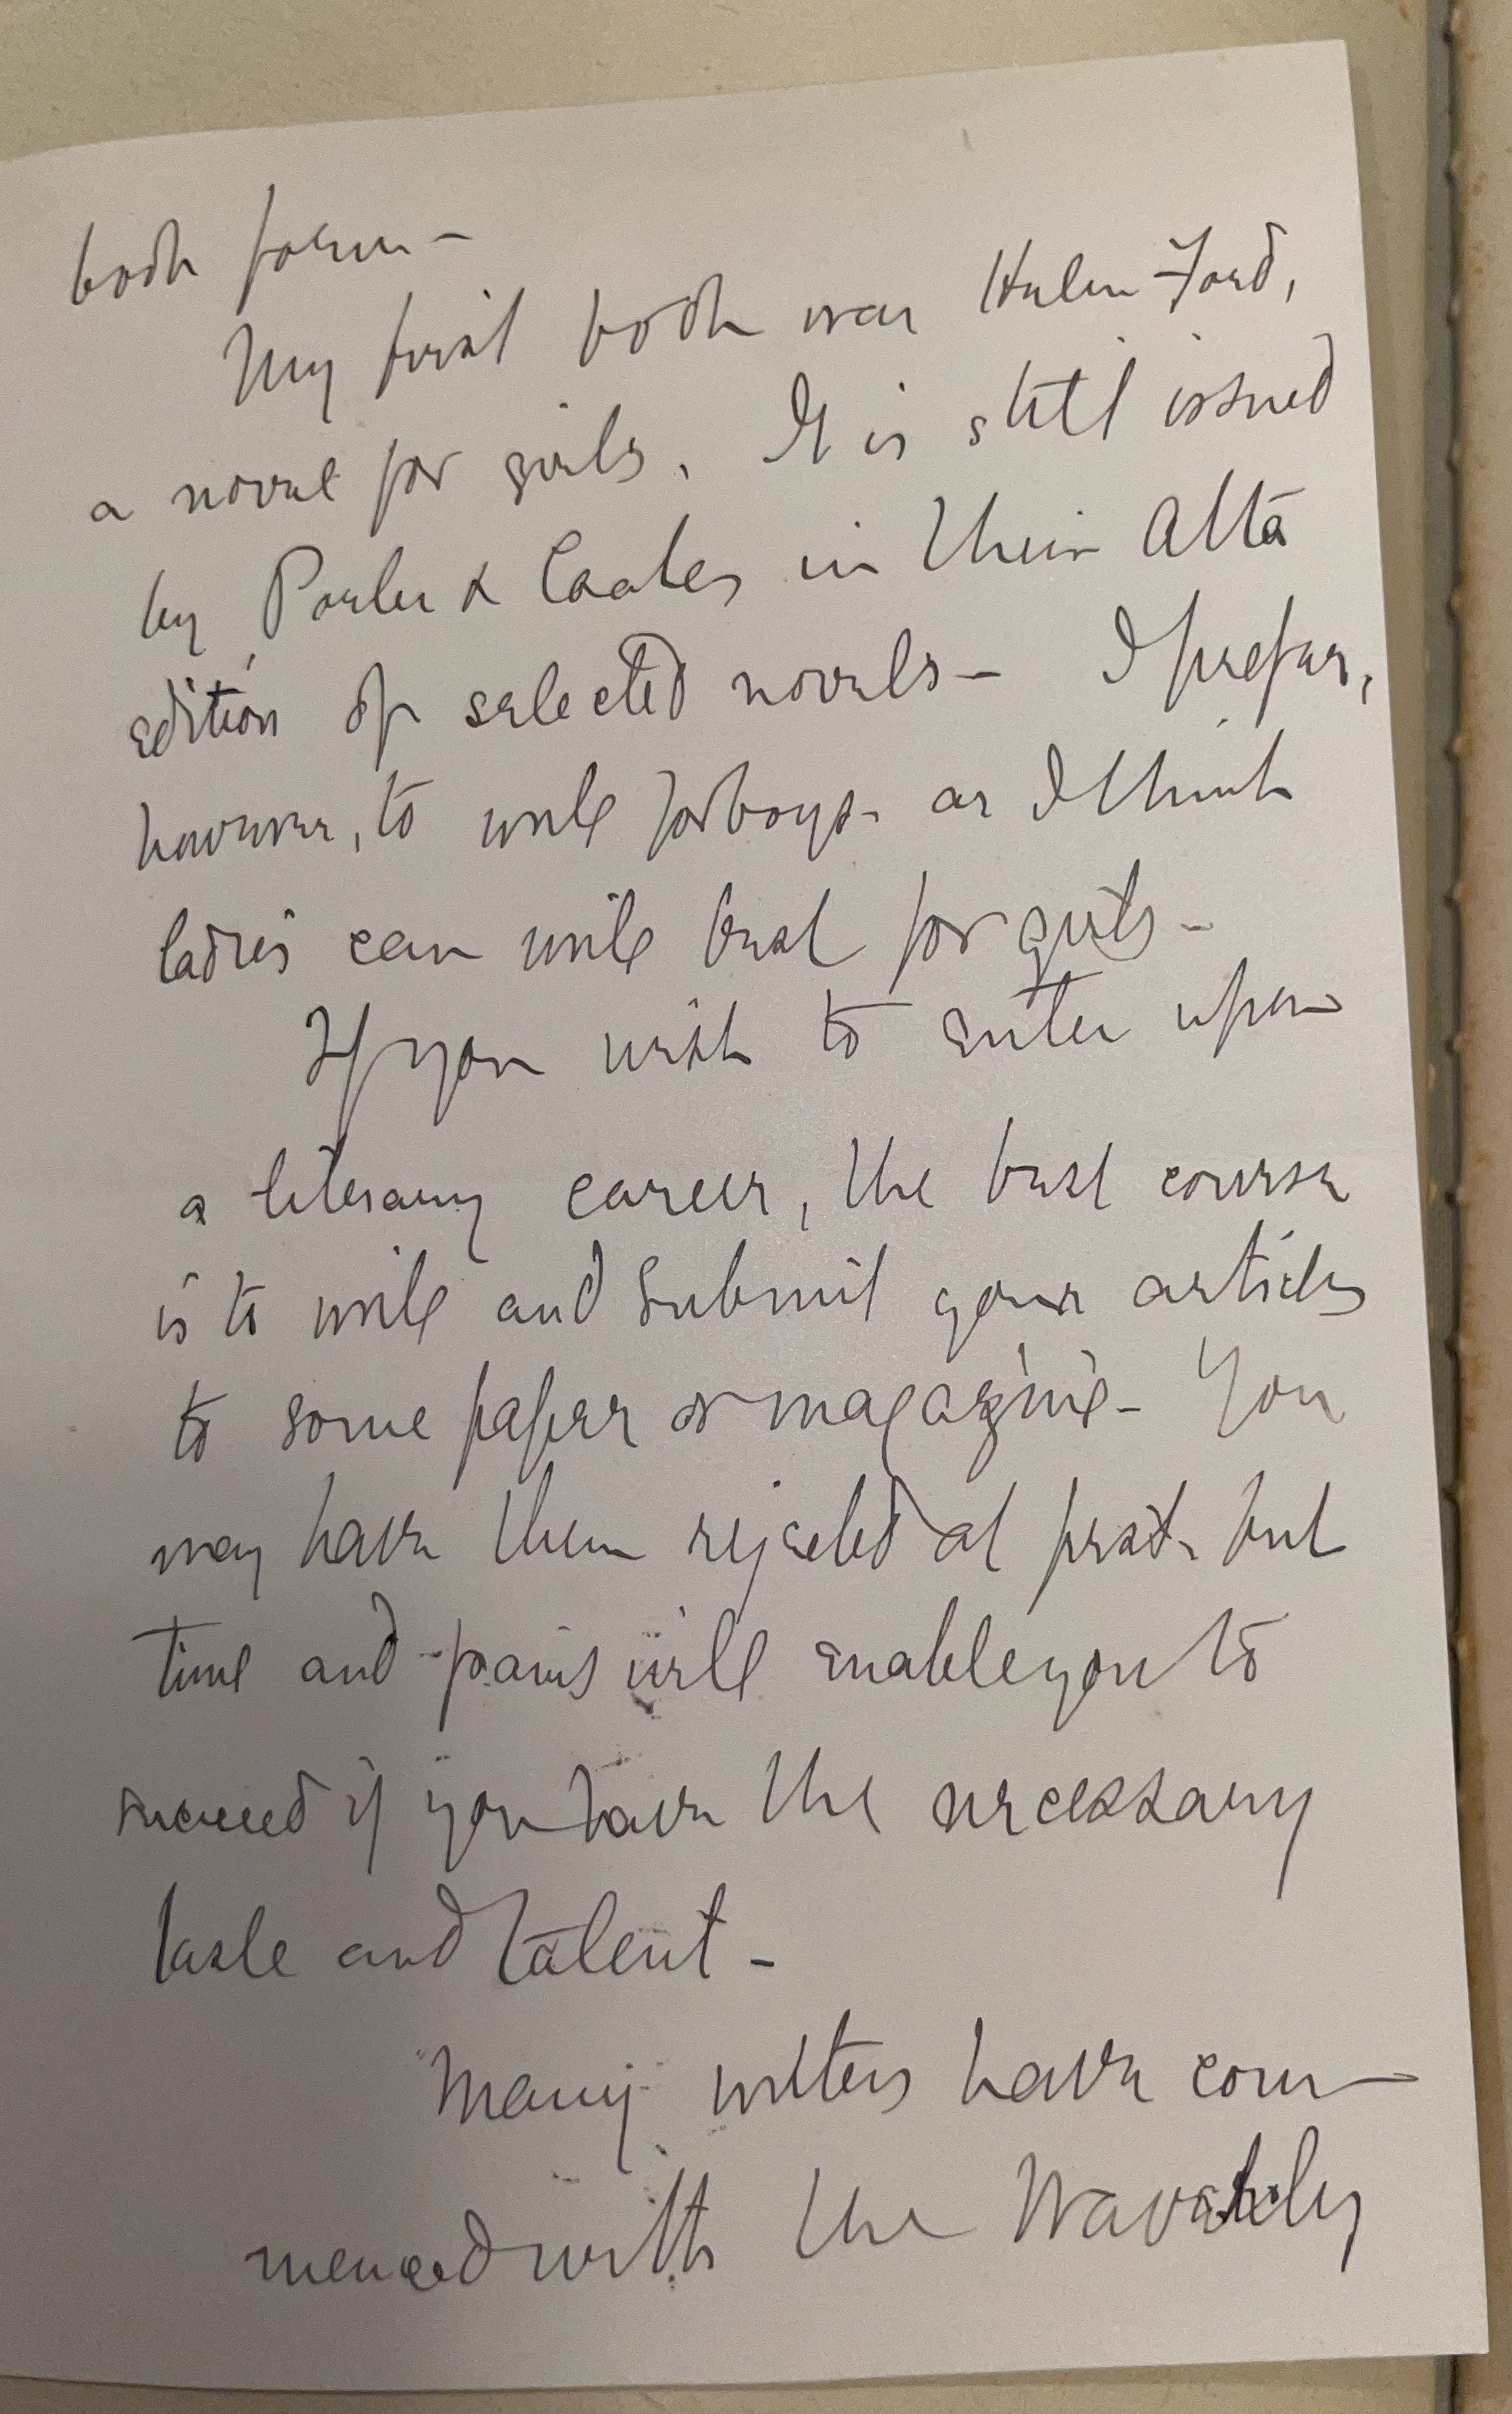 book form -
My first book was Helen Ford,
a novel for girls. It is still issued
by Porter & Coates in their Alta
edition of selected novels - I prefer,
however, to write for boys - as I think
ladies can write best for girls -
If you wish to enter upon
a literary career, the best course
is to write and submit your articles
to some paper or magazine - You
may have them rejected at first - but
time and pains will enable you to
succeed if you have the necessary
taste and talent -
Many writers have com-
menced with the Waverley